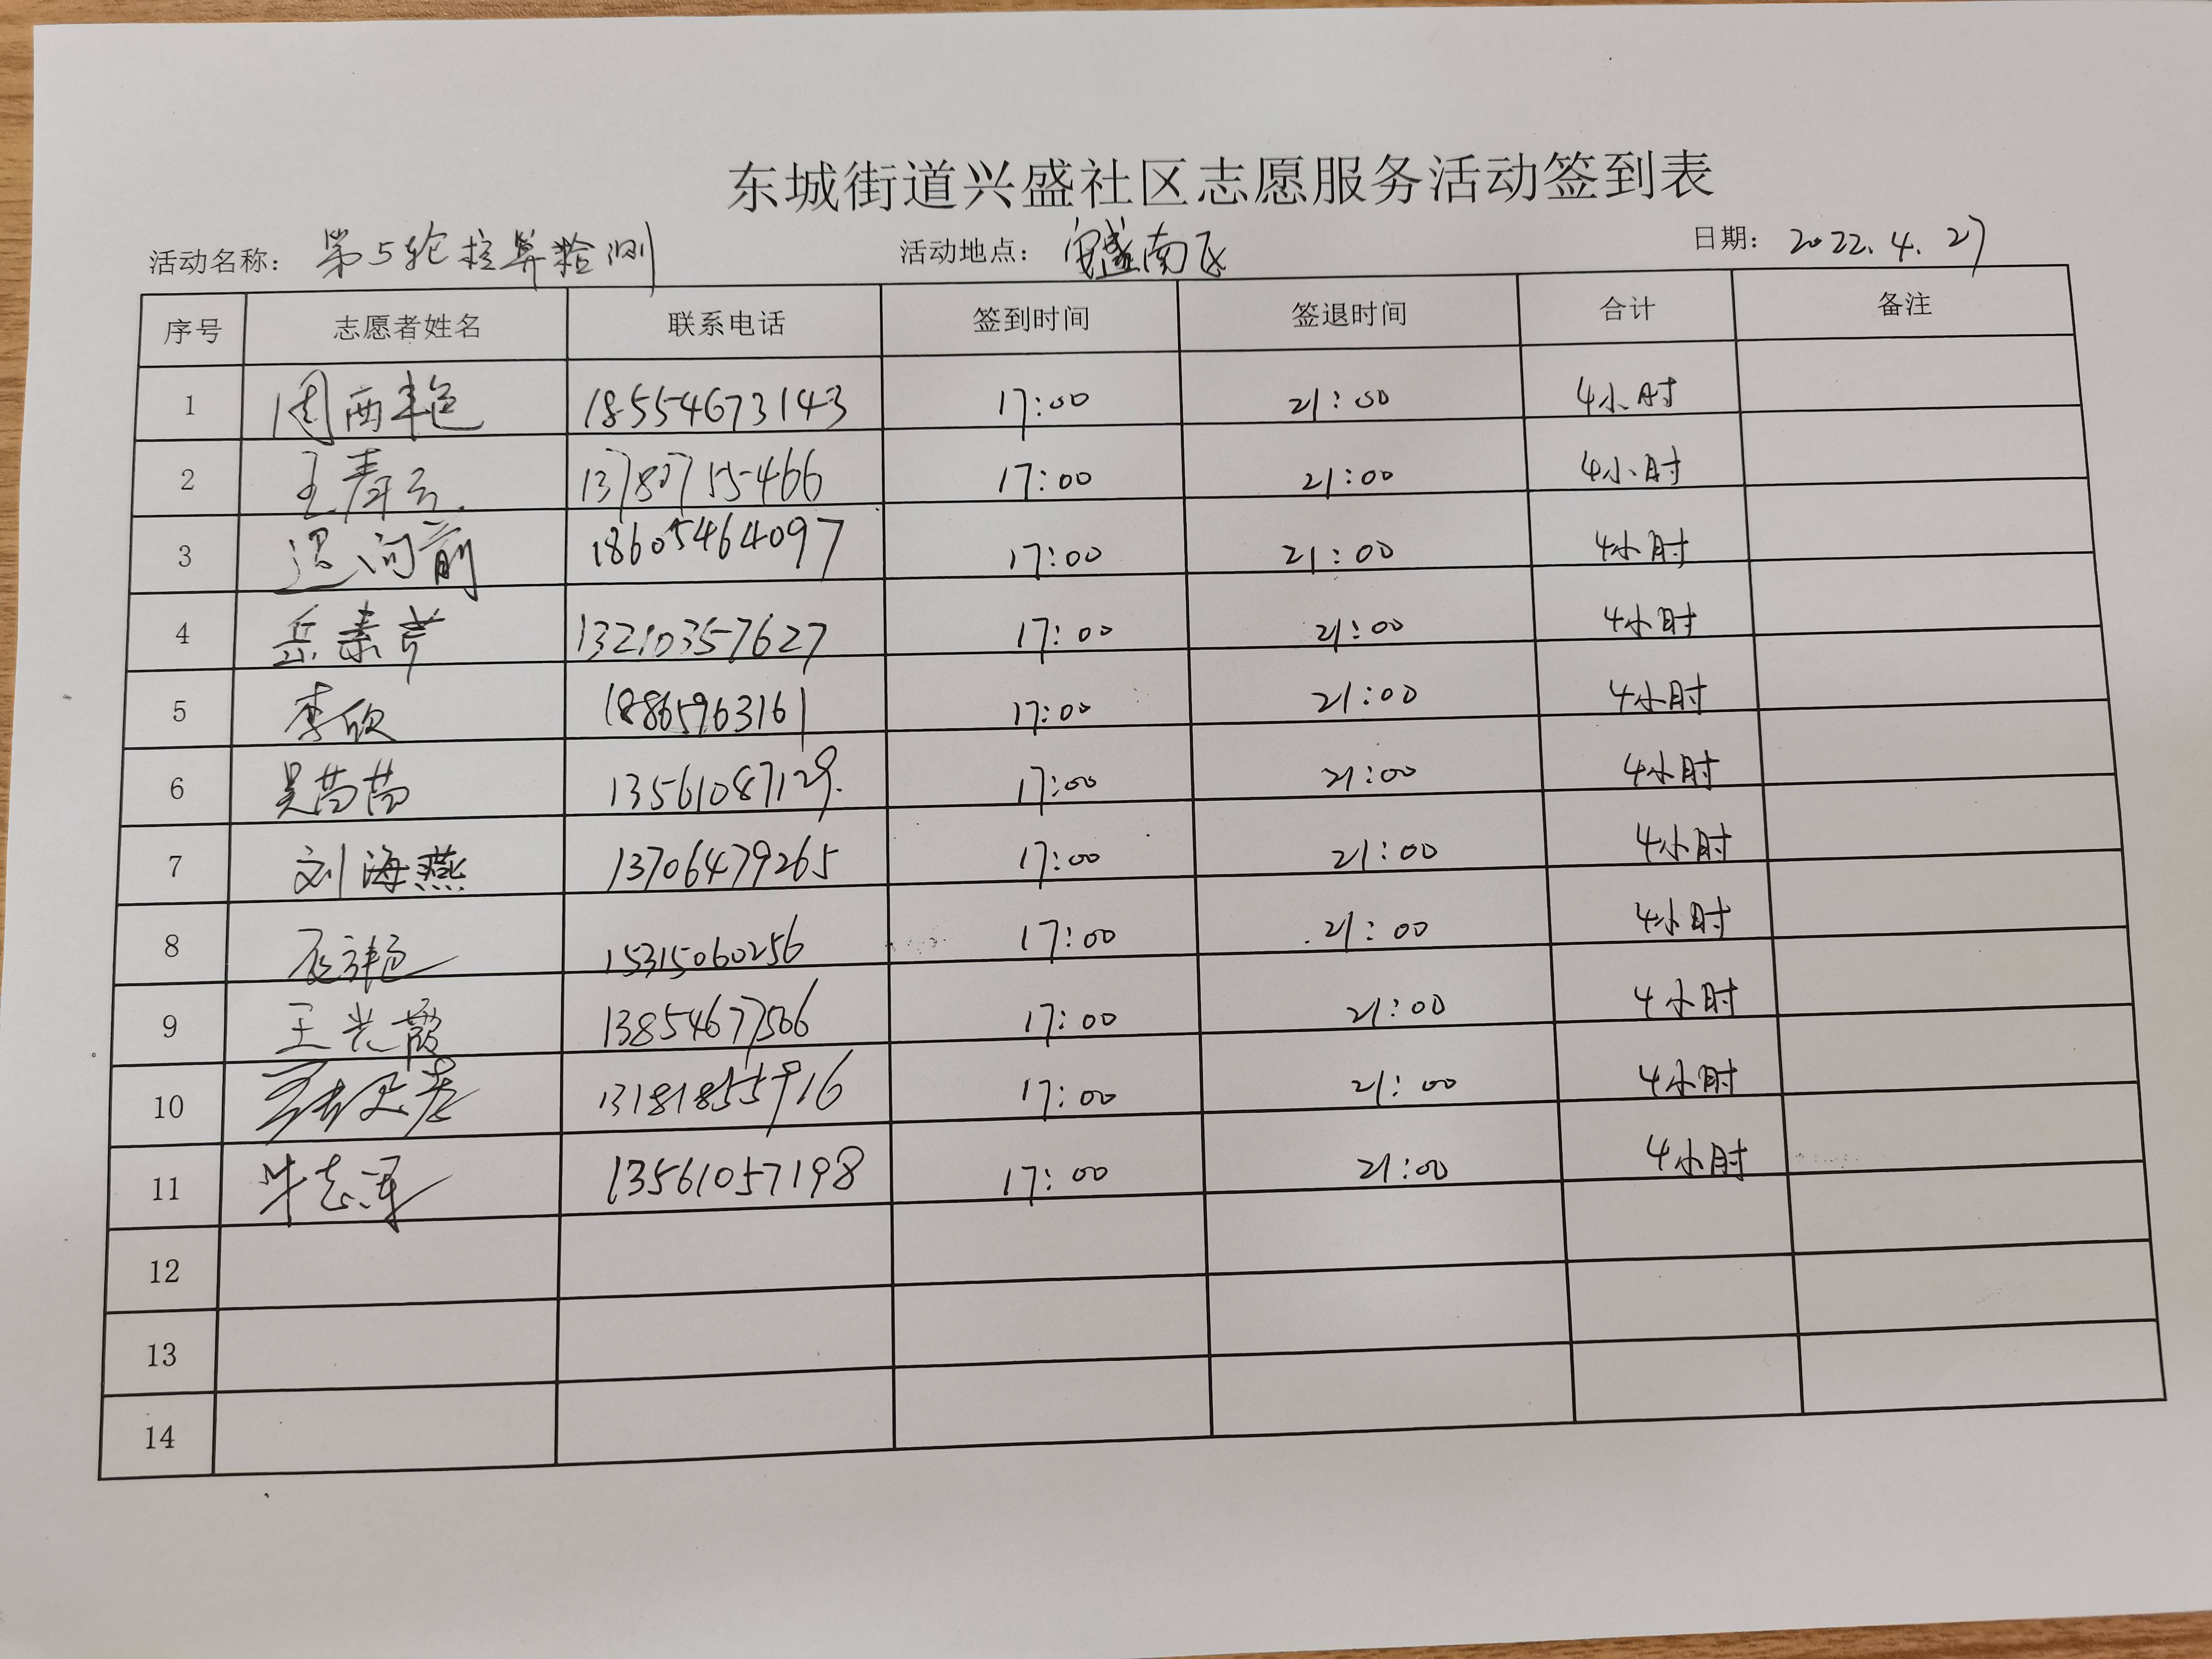 东城街道兴盛社区志愿服务活动签到表
活动名称: 第5轮核算检测 活动地点: 安盛南区 日期: 2022.4.27
序号 志愿者姓名 联系电话 签到时间 签退时间 合计 备注
1 周西艳 18554673143 17:00 21:00 4小时
2 王寿云 13780715466 17:00 21:00 4小时
3 18605464097 17:00 21:00 4小时
4 岳素芹 13210357627 17:00 21:00 4小时
5 李欣 18865963161 17:00 21:00 4小时
6 吴茜茜 13561087129 17:00 21:00 4小时
7 刘海燕 13706479265 17:00 21:00 4小时
8 15315060256 17:00 21:00 4小时
9 王光霞 13854677506 17:00 21:00 4小时
10 13181855916 17:00 21:00 4小时
11 13561057198 17:00 21:00 4小时
12
13
14